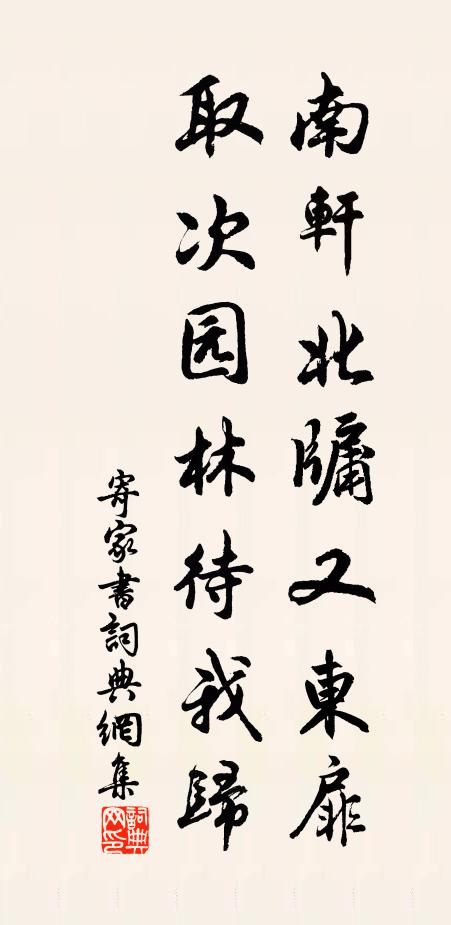 南軒北牖又東扉
取次园林待我歸
寄家書詞典網集
詞典网印